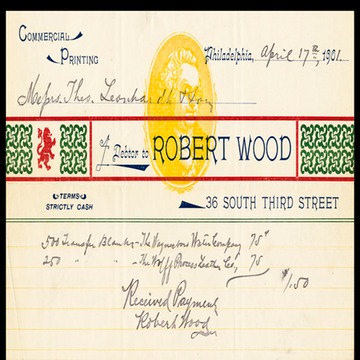 Commercial Printing
Philadelphia, April 17th, 1901.
Messrs. Theo. Leonhardt & Son
Debtor to ROBERT WOOD
TERMS
STRICTLY CASH
36 SOUTH THIRD STREET
500 Transfer Blanks - The Waynesboro Water Company 75¢
250 " " - The Wolff Process Leather Co., 75
$1.50
Received Payment
Robert Wood